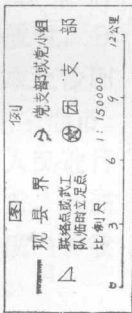 图例
现县界
党支部或党小组
联络点或武工队临时立足点
团支部
比例尺 1:150000
0 3 6 9 12公里